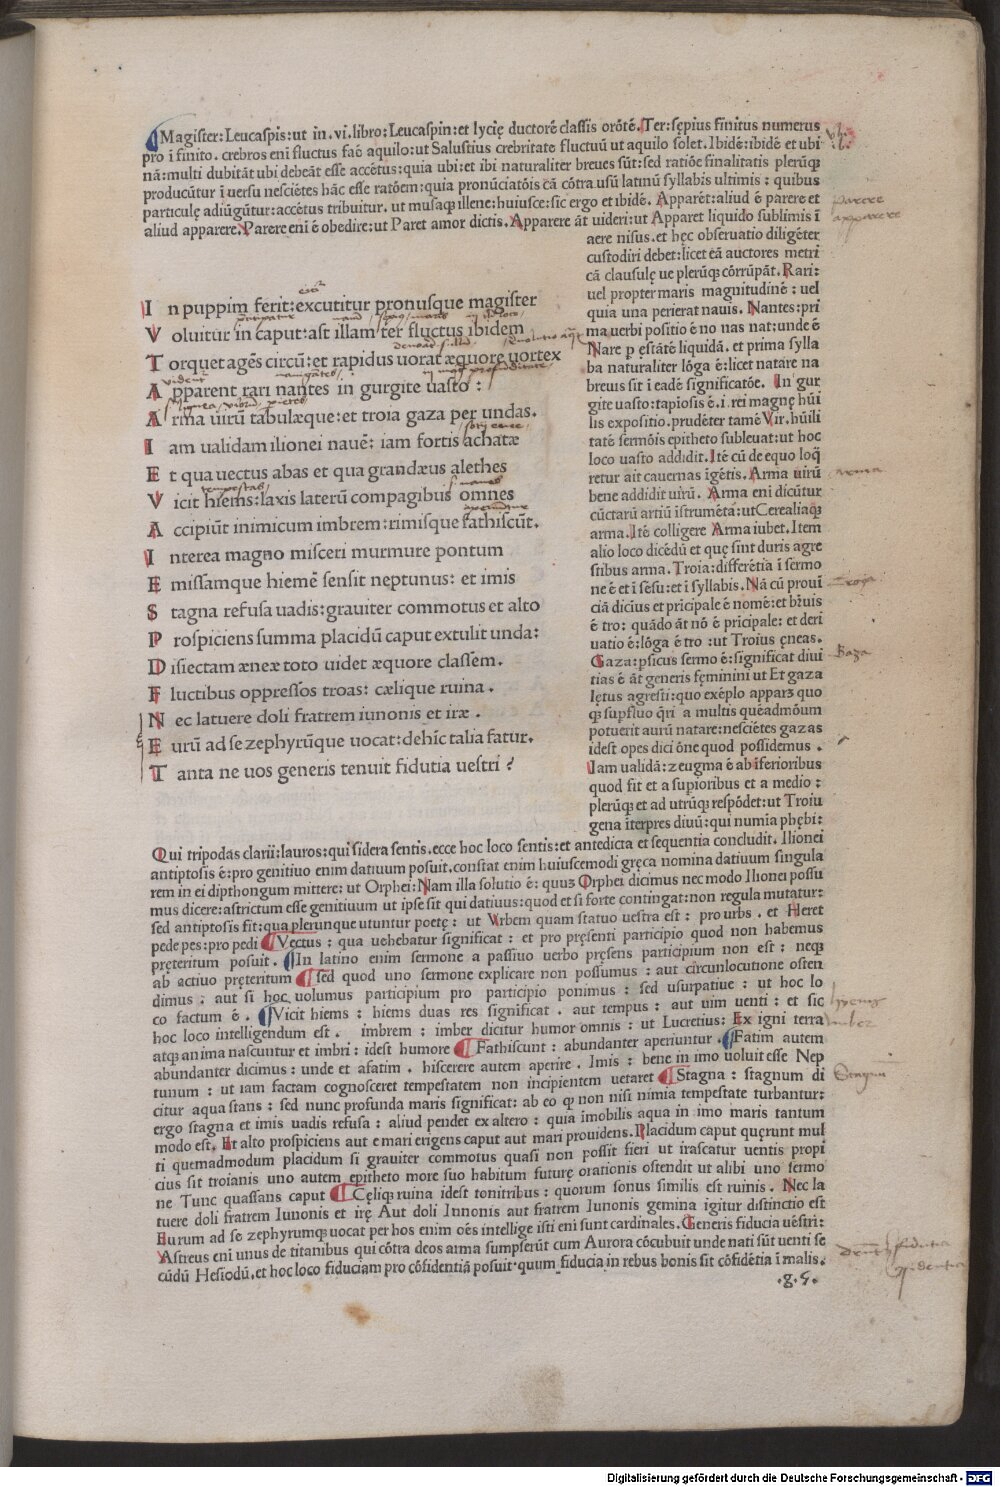 Magister: Leucaspis: ut in .vi. libro: Leucaspin: et lycię ductorē classis orōtē. Ter: sępius finitus numerus
pro ī finito. crebros eni fluctus facē aquilo: ut Salustius crebritate fluctuū ut aquilo solet. Ibidē: ibidē et ubi
nā: multi dubitāt ubi debeāt esse accētus: quia ubi: et ibi naturaliter breues sūt: sed ratiōe finalitatis plerūqꝫ
producūtur ī uersu nesciētes hāc esse ratōem: quia pronūciatōis cā cōtra usū latinū syllabis ultimis: quibus
particulę adiūgūtur: accētus tribuitur. ut musaqꝫ illene: huiusce: sic ergo et ibidē. Apparēt: aliud ē parere et
aliud apparere. Parere eni ē obedire: ut Paret amor dictis. Apparere āt uideri: ut Apparet liquido sublimis ī
aere nisus. et hęc obseruatio diligēter
custodiri debet: licet eā auctores metri
cā clausulę ue plerūqꝫ cōrrūpāt. Rari:
uel propter maris magnitudinē: uel
quia una perierat nauis. Nantes: pri
ma uerbi positio ē no nas nat: unde ē
Nare p ęstātē liquidā. et prima sylla
ba naturaliter lōga ē: licet natare na
breuis sit ī eadē significatōe. In gur
gite uasto: tapiosis ē .i. rei magnę hūi
lis expositio. prudēter tamē Vir. hūili
tatē sermōis epitheto subleuat: ut hoc
loco uasto addidit. Itē cū de equo loqꝫ
retur ait cauernas īgētis. Arma uirū
bene addidit uirū. Arma eni dicūtur
cūctarū artiū īstrumētā: ut Cerealiaqꝫ
arma. Itē colligere Arma iubet. Item
alio loco dicēdū et quę sint duris agre
stibus arma. Troia: differētia ī sermo
ne ē et ī sēsu: et ī syllabis. Nā cū prouī
ciā dicius et pricipale ē nomē: et bꝛuis
ē tro: quādo āt nō ē pricipale: et deri
uatio ē: lōga ē tro: ut Troius ęneas.
Gaza: psicus sermo ē: significat diui
tias ē āt generis fęminini ut Et gaza
lętus agresti: quo exēplo apparꝫ quo
qꝫ supfluo q̄ri a multis quēadmōum
potuerit aurū natare: nesciētes gazas
idest opes dici ōne quod possidemus.
Iam ualidā: zeugma ē ab īferioribus
quod fit et a supioribus et a medio:
plerūqꝫ et ad utrūqꝫ respōdet: ut Troiu
gena īterpres diuū: qui numia phębi:
I n puppim ferit: excutitur pronusque magister
V oluitur in caput: ast illam ter fluctus ibidem
T orquet agēs circū: et rapidus uorat æquore uortex
A pparent rari nantes in gurgite uasto:
A rma uirū tabulæque: et troia gaza per undas.
I am ualidam ilionei nauē: iam fortis achatæ
E t qua uectus abas et qua grandæus alethes
V icit hiems: laxis laterū compagibus omnes
A ccipiūt inimicum imbrem: rimisque fathiscūt.
I nterea magno misceri murmure pontum
E missamque hiemē sensit neptunus: et imis
S tagna refusa uadis: grauiter commotus et alto
P rospiciens summa placidū caput extulit unda:
D isiectam æneæ toto uidet æquore classem.
F luctibus oppressos troas: cælique ruina.
N ec latuere doli fratrem iunonis et iræ.
E urū ad se zephyrūque uocat: dehīc talia fatur.
T anta ne uos generis tenuit fidutia uestri?
Qui tripodas clarii: lauros: qui sidera sentis. ecce hoc loco sentis: et antedicta et sequentia concludit. Ilionei
antiptosis ē: pro genitiuo enim datiuum posuit. constat enim huiuscemodi gręca nomina datiuum singula
rem in ei dipthongum mittere: ut Orphei: Nam illa solutio ē: quuꝫ Orphei dicimus nec modo Ilionei possu
mus dicere: astrictum esse genitiuum ut ipse sit qui datiuus: quod et si forte contingat: non regula mutatur:
sed antiptosis fit: qua plerunque utuntur poetę: ut Vrbem quam statuo uestra est: pro urbs. et Heret
pede pes: pro pedi Vectus: qua uehebatur significat: et pro pręsenti participio quod non habemus
pręteritum posuit. In latino enim sermone a passiuo uerbo pręsens participium non est: neqꝫ
ab actiuo pręteritum sed quod uno sermone explicare non possumus: aut circunlocutione osten
dimus: aut si hoc uolumus participium pro participio ponimus: sed usurpatiue: ut hoc lo
co factum ē. Vicit hiems: hiems duas res significat. aut tempus: aut uim uenti: et sic
hoc loco intelligendum est. imbrem: imber dicitur humor omnis: ut Lucretius: Ex igni terra
atqꝫ anima nascuntur et imbri: idest humore Fathiscunt: abundanter aperiuntur. Fatim autem
abundanter dicimus: unde et afatim. hiscerere autem aperire. Imis: bene in imo uoluit esse Nep
tunum: ut iam factam cognosceret tempestatem non incipientem uetaret Stagna: stagnum di
citur aqua stans: sed nunc profunda maris significat: ab eo qꝫ non nisi nimia tempestate turbantur:
ergo stagna et imis uadis refusa: aliud pendet ex altero: quia imobilis aqua in imo maris tantum
modo est. Et alto prospiciens aut e mari erigens caput aut mari prouidens. Placidum caput quęrunt mul
ti quemadmodum placidum si grauiter commotus quasi non possit fieri ut irascatur uentis propi
cius sit troianis uno autem epitheto more suo habitum futurę orationis ostendit ut alibi uno sermo
ne Tunc quassans caput Cęliqꝫ ruina idest tonitribus: quorum sonus similis est ruinis. Nec la
tuere doli fratrem Iunonis et irę Aut doli Iunonis aut fratrem Iunonis gemina igitur distinctio est
Eurum ad se zephyrumqꝫ uocat per hos enim oēs intellige isti eni sunt cardinales. Generis fiducia uēstri:
Astreus eni unus de titanibus qui cōtra deos arma sumpserūt cum Aurora cōcubuit unde nati sūt uenti se
cūdū Hesiodū. et hoc loco fiduciam pro cōfidentiā posuit. quum fiducia in rebus bonis sit cōfidētia ī malis.
.g.5.
parere
apparere
arma
Troya
Gaza
hyems
imber
Digitalisierung gefördert durch die Deutsche Forschungsgemeinschaft - DFG